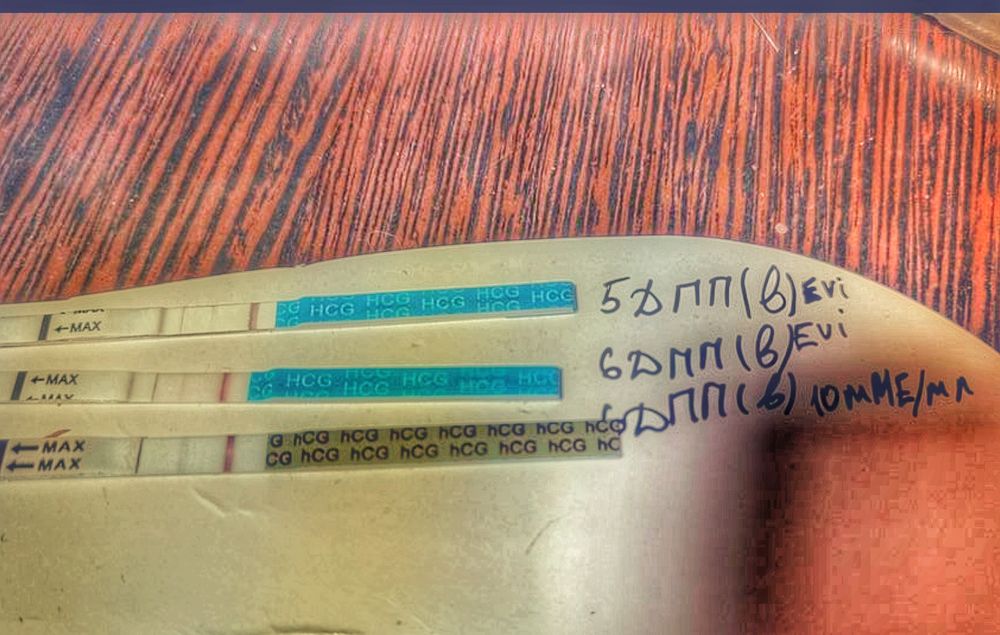 ←MAX
HCG HCG HCG HCG
HCG HCG HCG
5ДПП(в)EVi
←MAX
HCG HCG HCG
HCG HCG HCG
6ДПП(в)EVi
←MAX
←MAX
G hCG hCG hCG hCG hCG hCG hCG
CG hCG hCG hCG hCG hCG hCG hC
6ДПП(в) 10мМЕ/мл